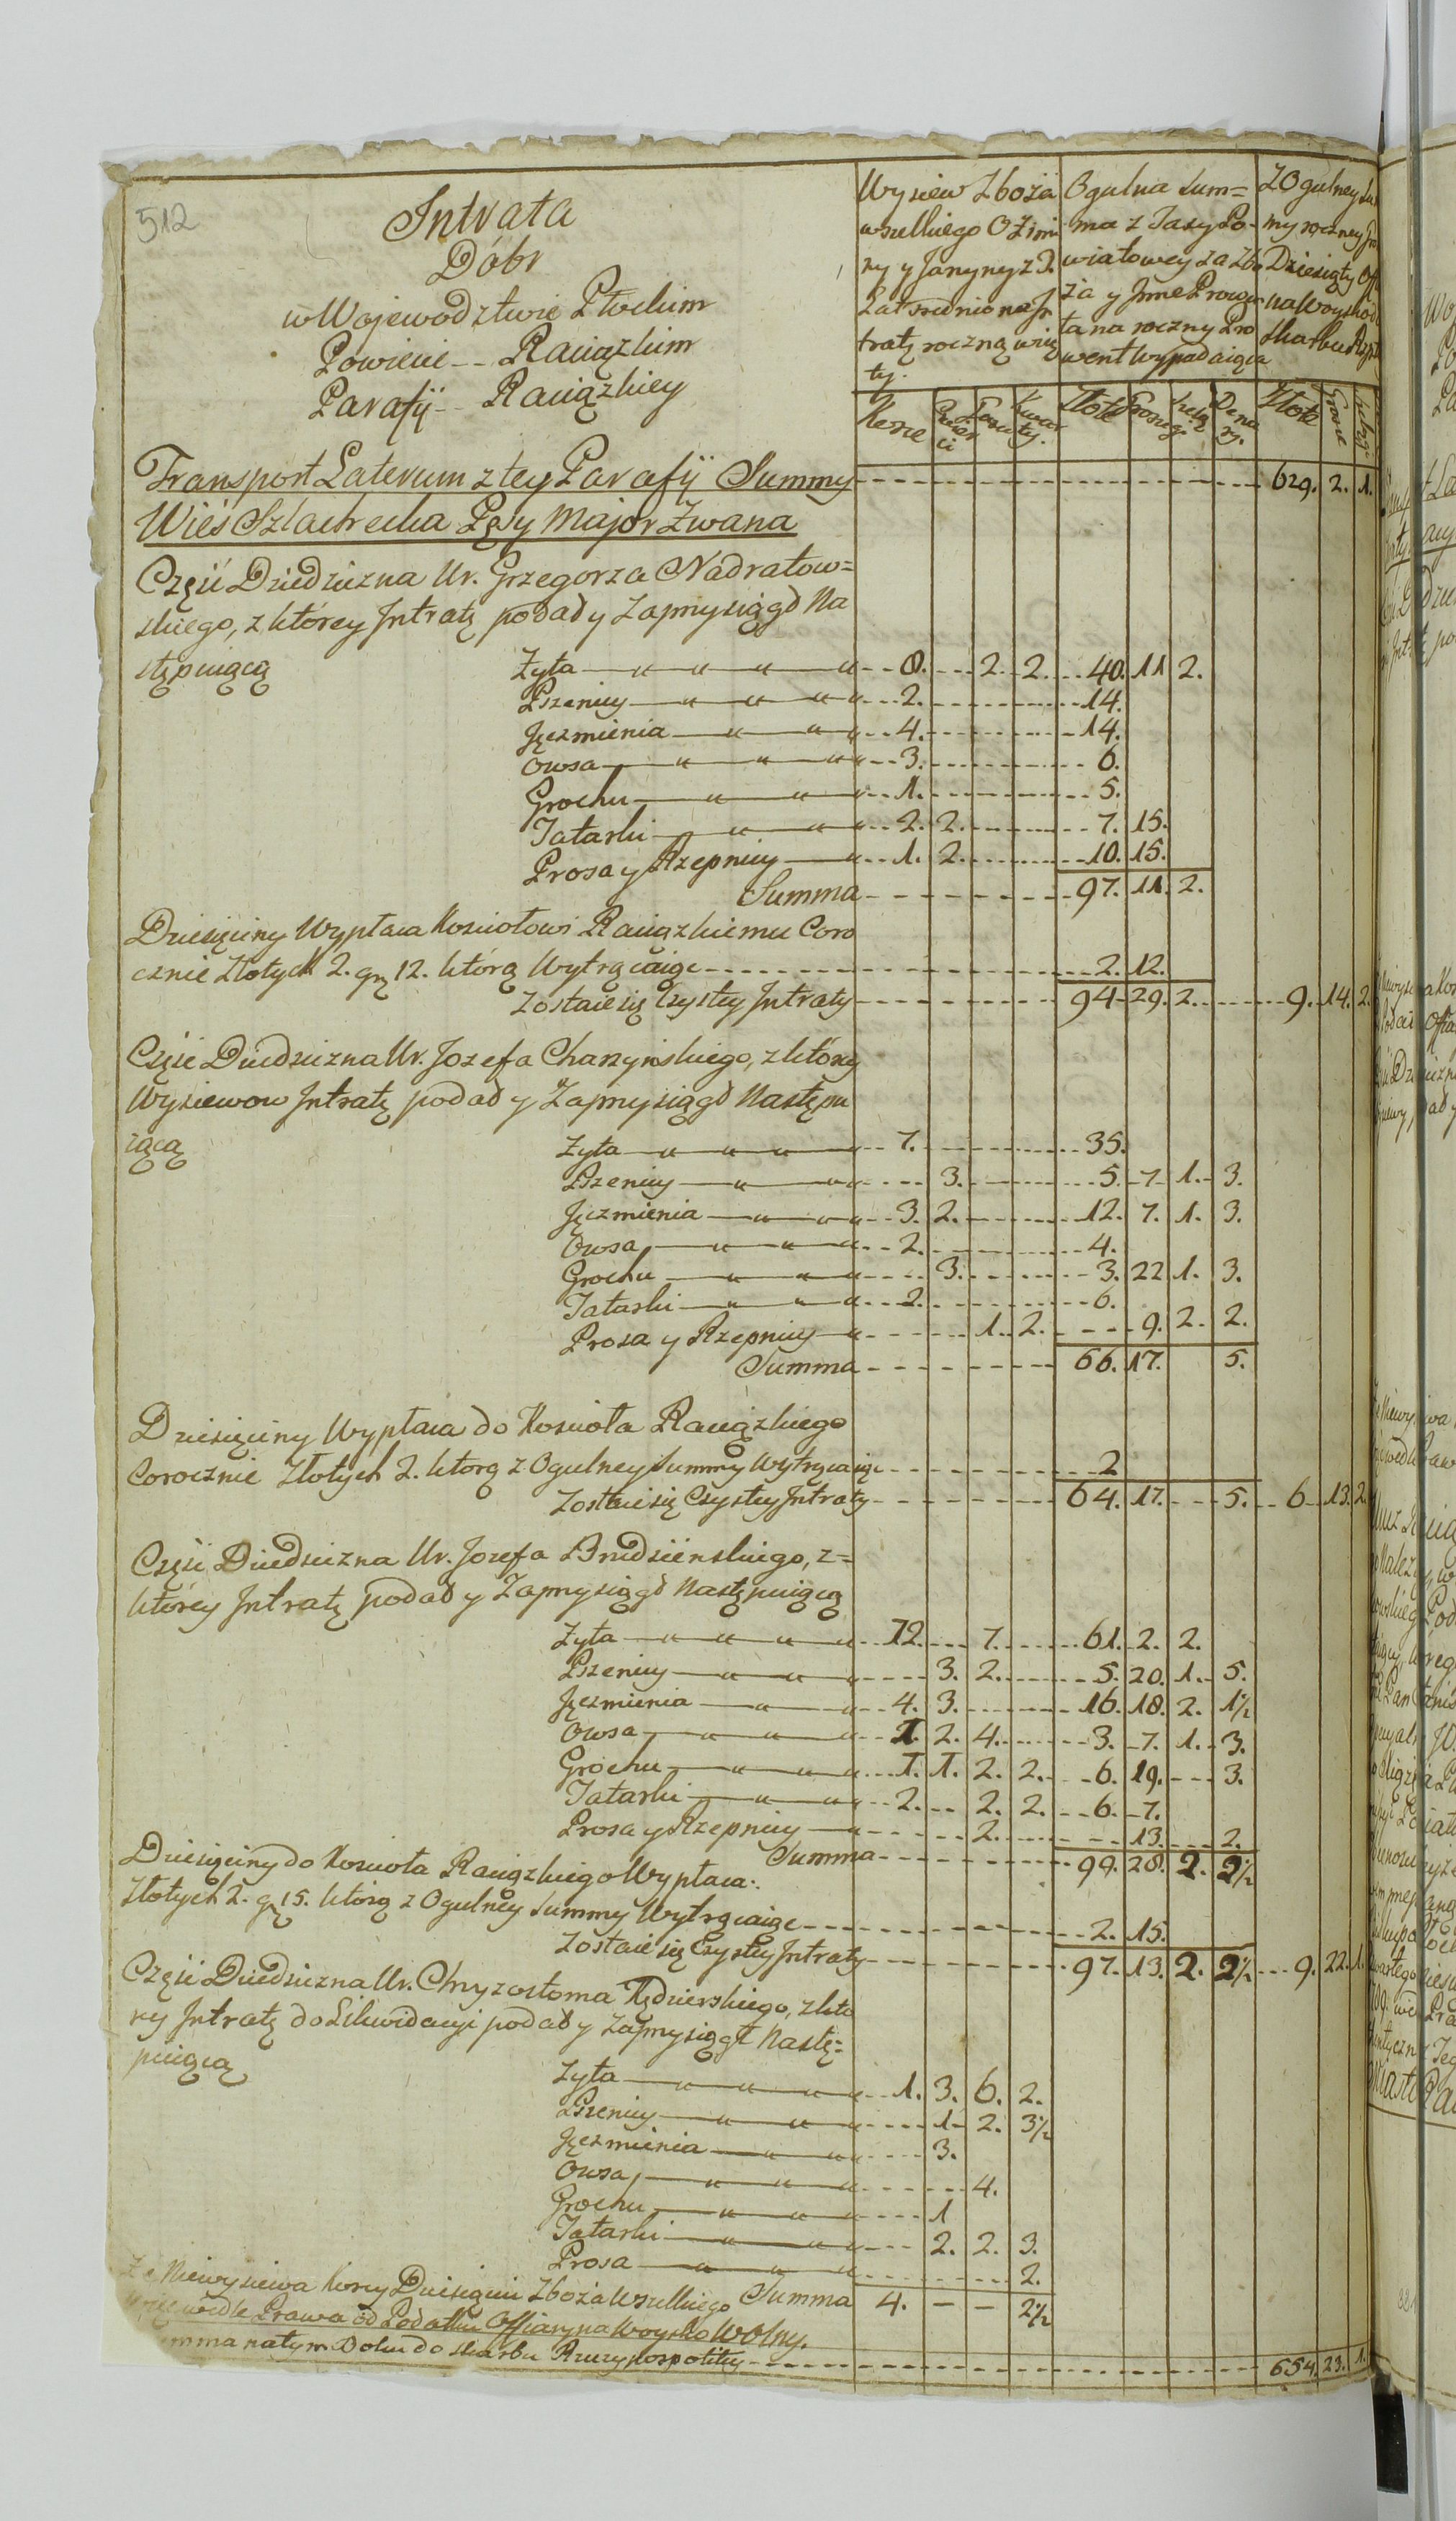 512
Intrata
Dóbr
w Wojewodztwie Płockim
Powiecie -- Raciązkim
Parafij -- Raciązkiey
Wysiew Zboża
wszelkiego Ozimi
ny y Jarzyny z 3.
Lat srednio na In
tratę roczną wzię
ty.
Ogulna Sum=
ma z Taxy Po-
wiatowey za Zbo
ża y Jnne Prowen
ta na roczny Pro
went Wypadaiąca
Z Ogulney Su
my roczney
Dziesiąty
na Woysko d
Skarbu Rzpl
Korce Ćwierci Garcy Kwarty. Złote Groszy Szelą Denary. Złote Grosze Szelągi
Transport Laterum z tey Parafij Summy 629. 2. 1.
Wieś Szlachecka Pęsy Major Zwana
Częśći Dziedziczna Ur. Grzegorza Nadratow=
skiego, z którey Jntratę podał y Zaprzysiągł Na
stępuiącą Żyta 8. 2. 2. 40. 11 2.
Pszenicy 2. 14.
Jęczmienia 4. 14.
Owsa 3. 6.
Grochu 1. 5.
Tatarki 2. 2. 7. 15.
Prosa y Rzepnicy 1. 2. 10. 15.
Summa 97. 11. 2.
Dziesięciny Wypłaca Kosciołowi Raciązkiemu Coro
cznie Złotych 2. gr 12. którą Wytrąciaiąc 2. 12.
Zostaie się Czystey Jntraty 94. 29. 2. 9. 14. 2.
Częśc Dziedziczna Ur. Jozefa Charzyńskiego, z którey
Wysiewow Jntratę podał y Zaprzysiągł Następu
iącą Żyta 7. 35.
Pszenicy 3. 5. 7. 1. 3.
Jęczmienia 3. 2. 12. 7. 1. 3.
Owsa 2. 4.
Grochu 3. 3. 22 1. 3.
Tatarki 2. 6.
Prosa y Rzepnicy 1. 2. 9. 2. 2.
Summa 66. 17. 5.
Dziesięciny Wypłaca do Kosciola Raciązkiego
Corocznie Złotych 2. ktorą z Ogulney Summy Wytrąciaiąc 2
Zostaie się Czystey Jntraty 64. 17. 5. 6 13. 2.
Częśći Dziedziczna Ur. Jozefa Brudzienskiego, z=
którey Jntratę podał y Zaprzysiągł Następuiącą
Żyta 12. 7. 61. 2. 2.
Pszenicy 3. 2. 5. 20. 1. 5.
Jęczmienia 4. 3. 16. 18. 2. 1½
Owsa 1. 2. 4. 3. 7. 1. 3.
Grochu 1. 1. 2. 2. 6. 19. 3.
Tatarki 2. 2. 2. 6. 7.
Prosa y Rzepnicy 2. 13. 2.
Summa 99. 28. 2. 2½
Dziesięciny do Kosciola Raciązkiego Wypłaca
Złotych 2. gr 15. którą z Ogulney Summy Wytrąciaiąc 2. 15.
Zostaie się Czystey Jntraty 97. 13. 2. 2½ 9. 22. 1.
Częśći Dziedziczna Ur. Chryzostoma Kędzierskiego, z kto
rey Jntratę do Likwidacyi podał y Zaprzysiągł Nastę=
puiącą Żyta 1. 3. 6. 2.
Pszenicy 1. 2. 3½
Jęczmienia 3.
Owsa 4.
Grochu 1
Tatarki 2. 2. 3.
Prosa 2.
Summa 4. - - 2½
Ze Niewysiewa Korcy Dziesięciu Zboża Wszelkiego
wedle Prawa od Podatku Offiary na Woysko Wolny.
Summa na tym Boku do Skarbu Rzeczypospolitey 654. 23. 1.